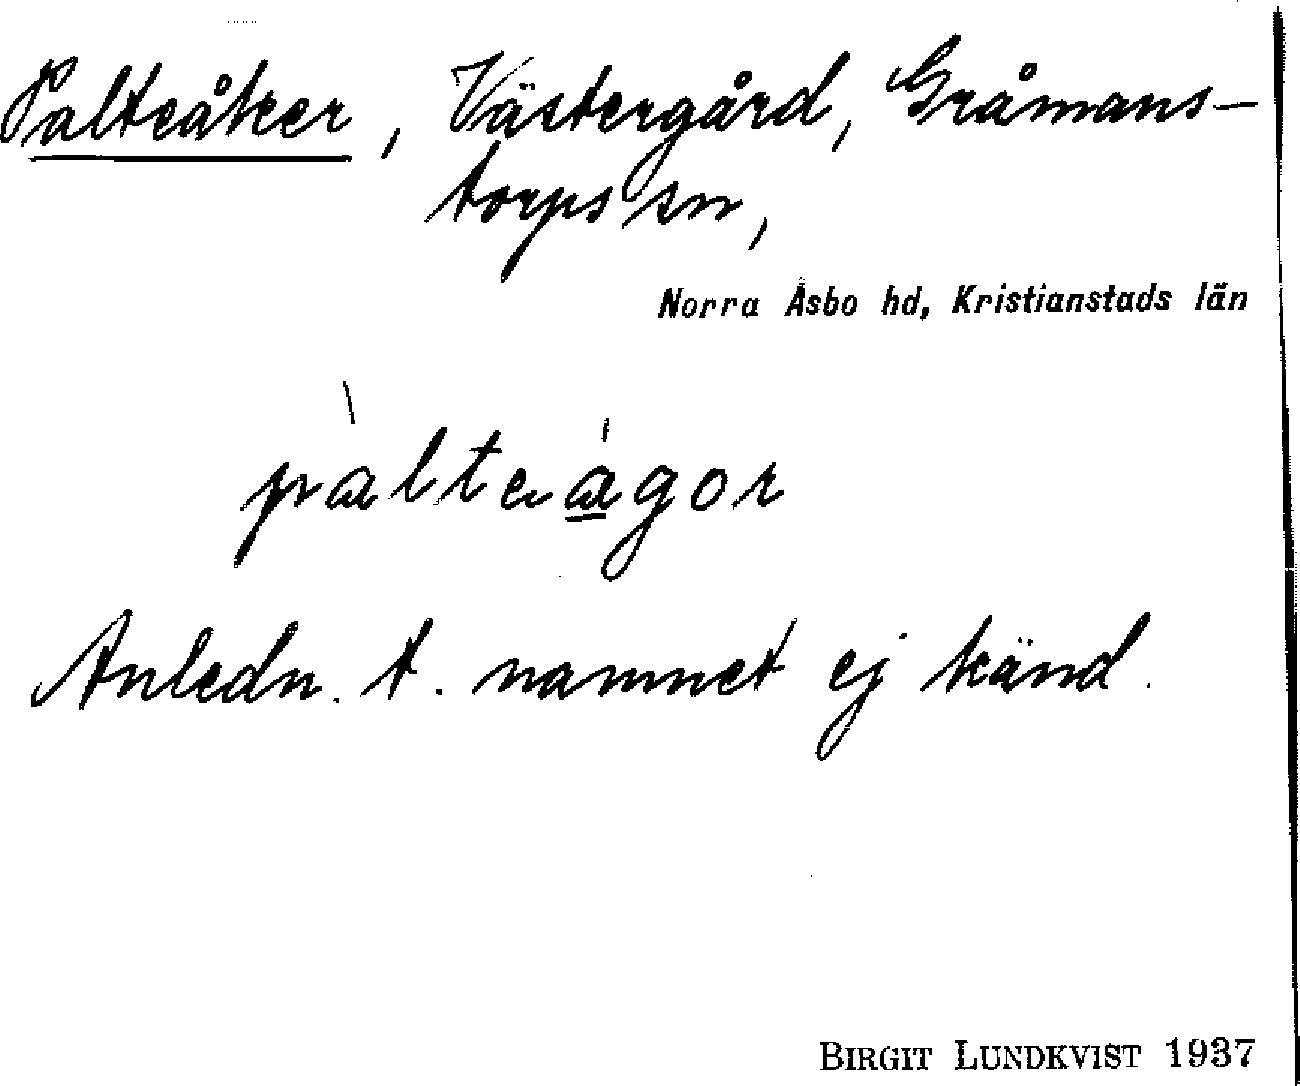 Palteåker, Västergård, Gråmans-
torps sn,
Norra Åsbo hd, Kristianstads län
pàlteágor
Anledn. t. namnet ej känd.
BIRGIT LUNDKVIST 1937